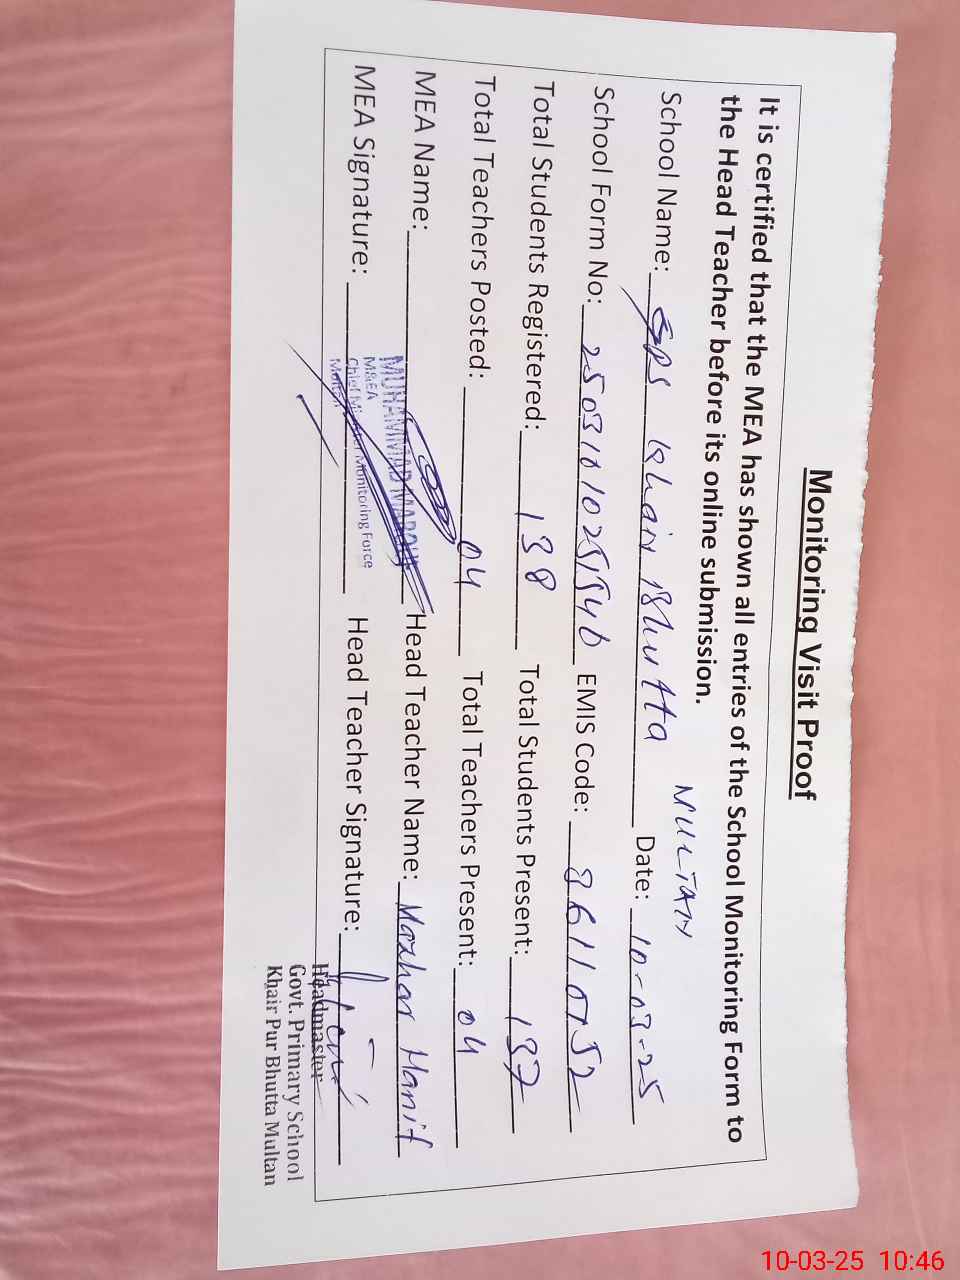 Monitoring Visit Proof
It is certified that the MEA has shown all entries of the School Monitoring Form to
the Head Teacher before its online submission.
MULTAN
School Name: GPS Khair Bhutta Date: 10-03-25
School Form No: EMIS Code:
Total Students Registered: 138 Total Students Present: 137
Total Teachers Posted: 04 Total Teachers Present: 04
MEA Name: MUHAMMAD Head Teacher Name: Mazhar Hanif
MEA Signature: Head Teacher Signature:
M&EA
Chief Minister Monitoring Force
Multan
Headmaster
Govt. Primary School
Khair Pur Bhutta Multan
10-03-25 10:46